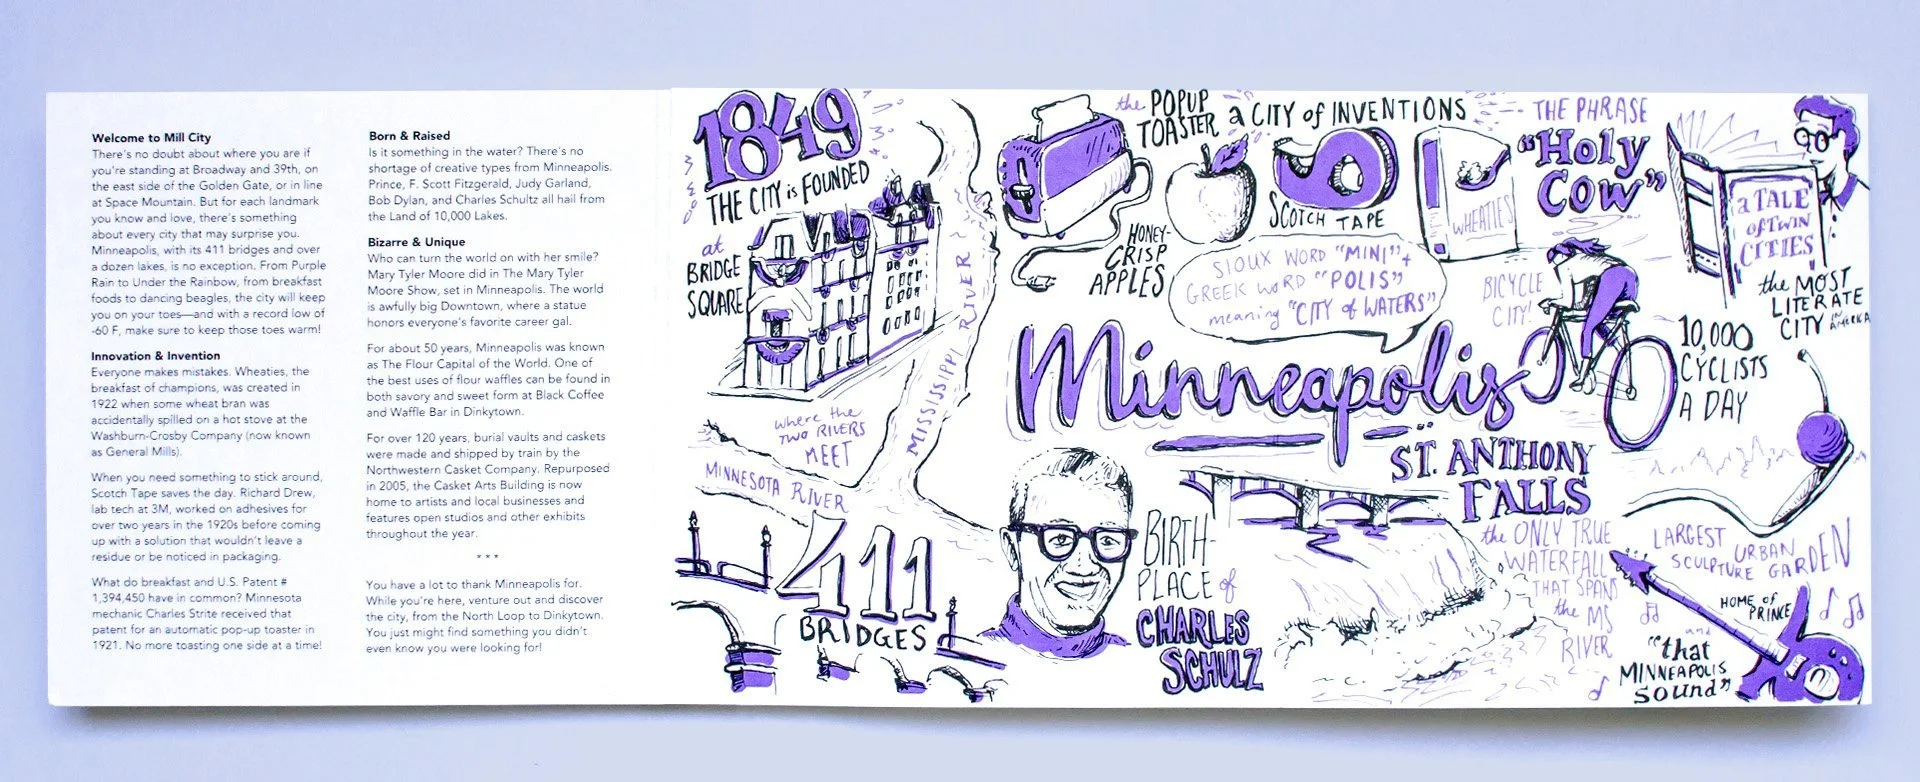 Welcome to Mill City
There's no doubt about where you are if
you're standing at Broadway and 39th, on
the east side of the Golden Gate, or in line
at Space Mountain. But for each landmark
you know and love, there's something
about every city that may surprise you.
Minneapolis, with its 411 bridges and over
a dozen lakes, is no exception. From Purple
Rain to Under the Rainbow, from breakfast
foods to dancing beagles, the city will keep
you on your toes—and with a record low of
-60 F, make sure to keep those toes warm!
Innovation & Invention
Everyone makes mistakes. Wheaties, the
breakfast of champions, was created in
1922 when some wheat bran was
accidentally spilled on a hot stove at the
Washburn-Crosby Company (now known
as General Mills).
When you need something to stick around,
Scotch Tape saves the day. Richard Drew,
lab tech at 3M, worked on adhesives for
over two years in the 1920s before coming
up with a solution that wouldn't leave a
residue or be noticed in packaging.
What do breakfast and U.S. Patent #
1,394,450 have in common? Minnesota
mechanic Charles Strite received that
patent for an automatic pop-up toaster in
1921. No more toasting one side at a time!
Born & Raised
Is it something in the water? There's no
shortage of creative types from Minneapolis.
Prince, F. Scott Fitzgerald, Judy Garland,
Bob Dylan, and Charles Schultz all hail from
the Land of 10,000 Lakes.
Bizarre & Unique
Who can turn the world on with her smile?
Mary Tyler Moore did in The Mary Tyler
Moore Show, set in Minneapolis. The world
is awfully big Downtown, where a statue
honors everyone's favorite career gal.
For about 50 years, Minneapolis was known
as The Flour Capital of the World. One of
the best uses of flour waffles can be found in
both savory and sweet form at Black Coffee
and Waffle Bar in Dinkytown.
For over 120 years, burial vaults and caskets
were made and shipped by train by the
Northwestern Casket Company. Repurposed
in 2005, the Casket Arts Building is now
home to artists and local businesses and
features open studios and other exhibits
throughout the year.
* * *
You have a lot to thank Minneapolis for.
While you're here, venture out and discover
the city, from the North Loop to Dinkytown.
You just might find something you didn't
even know you were looking for!
1849
THE CITY is FOUNDED
at
BRIDGE
SQUARE
MISSISSIPPI RIVER
where the
TWO RIVERS
MEET
MINNESOTA RIVER
411
BRIDGES
the POPUP
TOASTER
a CITY of INVENTIONS
HONEY-
CRISP
APPLES
SCOTCH TAPE
WHEATIES
THE PHRASE
"Holy
COW"
a TALE
of TWIN
CITIES
the MOST
LITERATE
CITY IN
AMERICA
SIOUX WORD "MINI" +
GREEK WORD "POLIS"
meaning "CITY of WATERS"
BICYCLE
CITY!
10,000
CYCLISTS
A DAY
Minneapolis
BIRTH-
PLACE of
CHARLES
SCHULZ
ST. ANTHONY
FALLS
the ONLY TRUE
WATERFALL
THAT SPANS
the MS
RIVER
LARGEST
URBAN
SCULPTURE GARDEN
HOME of
PRINCE
and
"that
MINNEAPOLIS
SOUND"